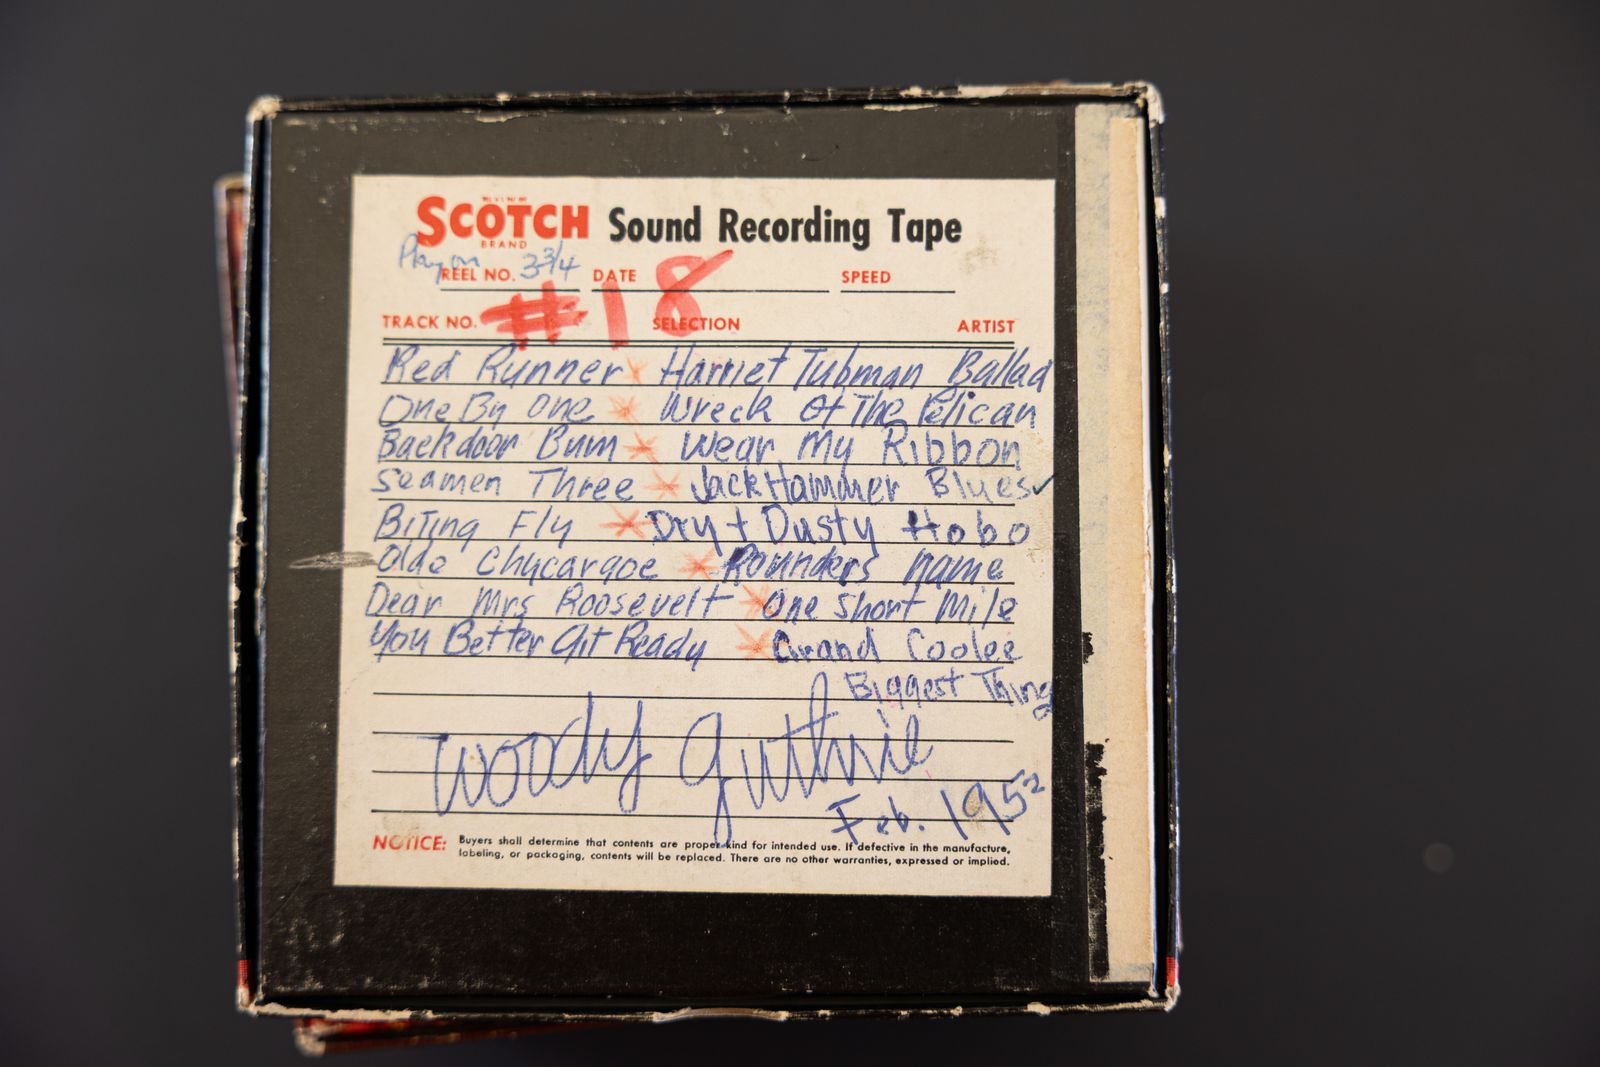 SCOTCH Sound Recording Tape
BRAND
Play on
REEL NO. 3 3/4 DATE SPEED
#18
TRACK NO. SELECTION ARTIST
Red Runner * Harriet Tubman Ballad
One By One * Wreck Of The Pelican
Backdoor Bum * Wear My Ribbon
Seamen Three * JackHammer Blues ✓
Biting Fly * Dry + Dusty Hobo
Olde Chycargoe * Rounders name
Dear Mrs Roosevelt * One Short Mile
You Better Git Ready * Grand Coolee
Biggest Thing
Woody Guthrie
Feb. 1952
NOTICE: Buyers shall determine that contents are proper kind for intended use. If defective in the manufacture,
labeling, or packaging, contents will be replaced. There are no other warranties, expressed or implied.